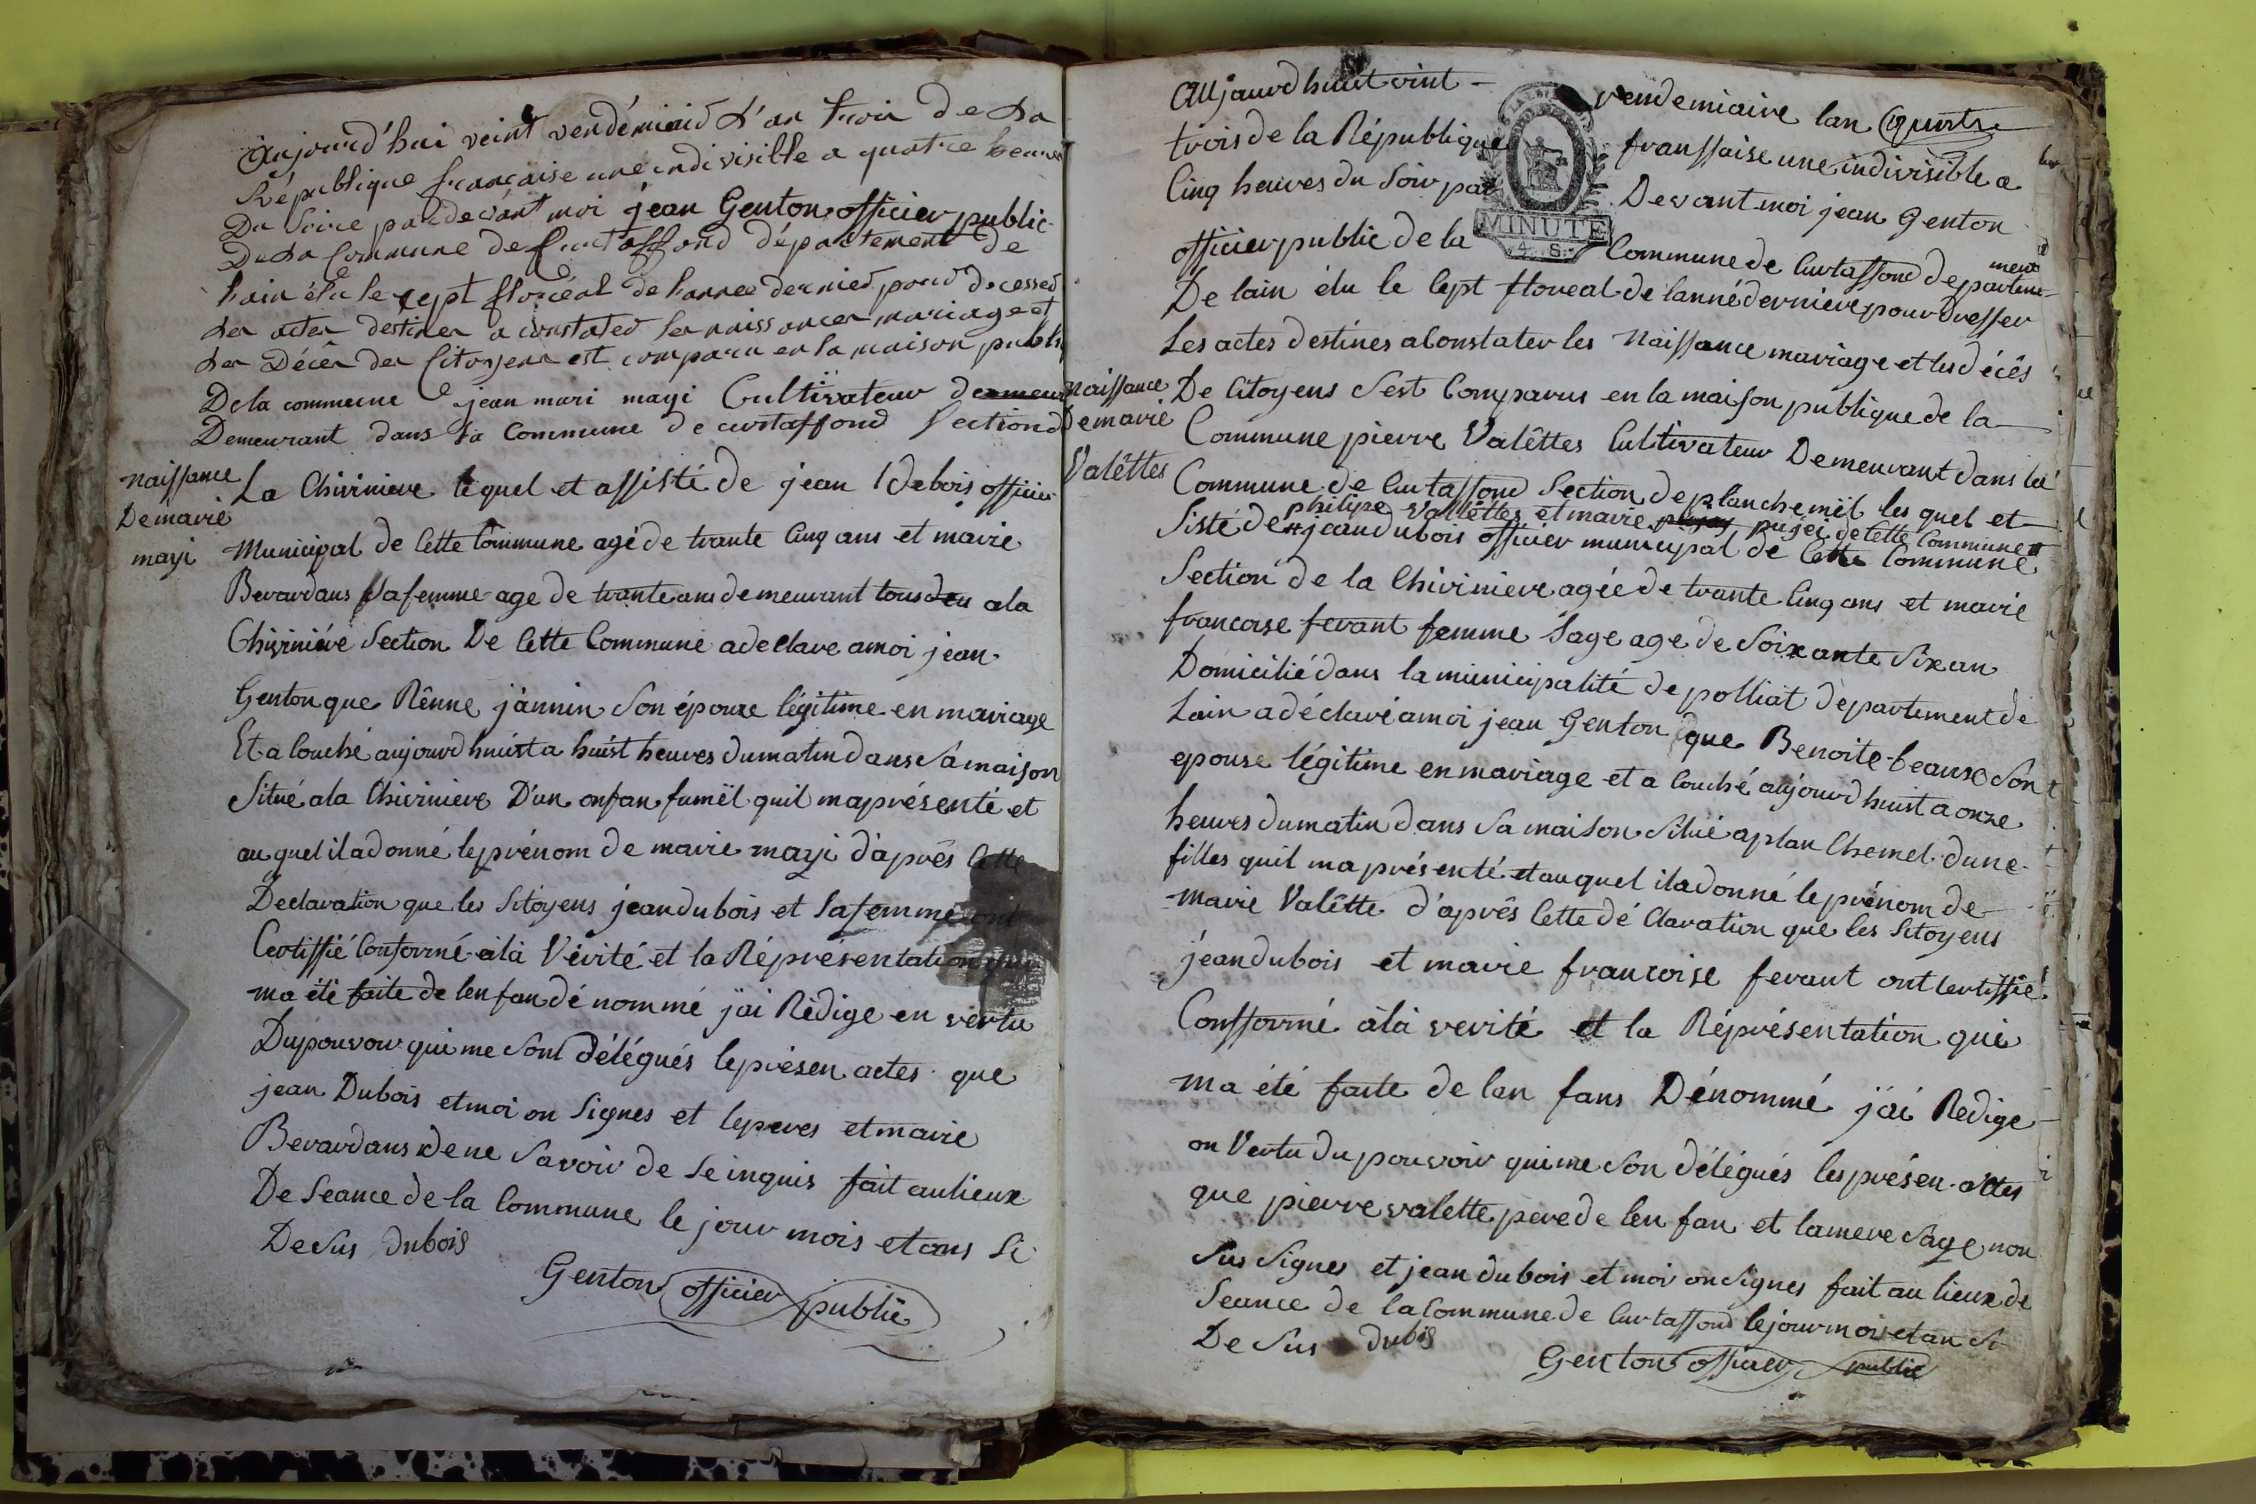 Aujourd'hui veint vendémiaid d'an troi de da
République française une indivisible a quatre heures
Du Soire pardevant moi jéan Genton officier public
De da Commune de Curtaffond département de
Lain élu le sept floréal de l'année dernied pour dressed
des actes destines a constated les naissances mariage et
des Décès des Citoyens est comparu en la maison publi
De la commune jean mari mayi Cultivateur
Demeurant dans la Commune de curtaffond Section de
naissance
De marie
mayi
La Chivriniere lequel et assisté de jean dubois officier
Municipal de Cette Commune agé de trante Cinq ans et marie
Berardans sa femme age de trante ans demeurant tous deu a la
Chiviniére Section De Cette Commune a declare a moi jean
Genton que Rênne jánnin Son épouse légitime en mariage
Et a Couché aujourd huist a huist heures du matin dans Sa maison
Situé a la Chiviniere D'un onfan fumêl quil ma présenté et
au quel il a donné le prénom de marie mayi d'après Cette
Declaration que les Sitoyens jean dubois et Sa femme ont
Certiffié Conformé à là Vérité et la Réprésentation qui
ma été faite de lenfan dé nommé j'ai Rédige en vertu
Du pouvoir qui me Sont délégués le présen actes que
jean Dubois et moi on Signes et le peres et marie
Berardans de ne Savoir de Se inquis fait au lieux
De Seance de la Commune le jour mois et ans Si
De Sus dubois
Genton officier public
Aujaurd huist vint vendemiaire lan
trois de la République franssaise une indivisible a
Cinq heures du Soir par Devant moi jean Genton
MINUTE
4. S.
officier public de la Commune de Curtaffond departement
De lain élu le Sept floreal de lanné derniere pour dresser
Les actes destines a Constater les Naissance mariage et les décês
naissance
De marie
Valêttes
De Citoyens Sest Comparus en la maison publique de la
Commune pierre Valêttes Cultivateur Demeurant dans la
Commune de Curtaffond Section de planchemêl les quel et
philipe Vallêttes et marie pugei de Cette Commune
Sisté de jean dubois officier municipal de Cette Commune
Section de la Chiviniere agée de trante Cinq ans et marie
francoise ferant femme Sage age de Soixante Six an
Domicilié dans la municipalité de polliat departement de
Lain a déclaré a moi jean Genton que Benoite beause Son
epouse légitime en mariage et a Couché aujourd huist a onze
heures du matin dans Sa maison Situé a plan Chemel dune
filles quil ma présenté et au quel il a donné le prénom de
marie Valêtte d'après Cette dé Claration que les Sitoyens
jéan dubois et marie francoise ferant ont Certiffié
Confformé à là verité et la Réprésentation qui
ma été faite de lan fans Dénommé j'ai Redige
on Vertu du pouvoir qui me Son délégués les présen actes
que pierre valette pere de len fan et la mere Sage non
Sus Signes et jean dubois et moi on Signes fait au lieux de
Seance de la Commune de Curtaffond le jour mois et an Si
De Sus dubois
Genton officier public